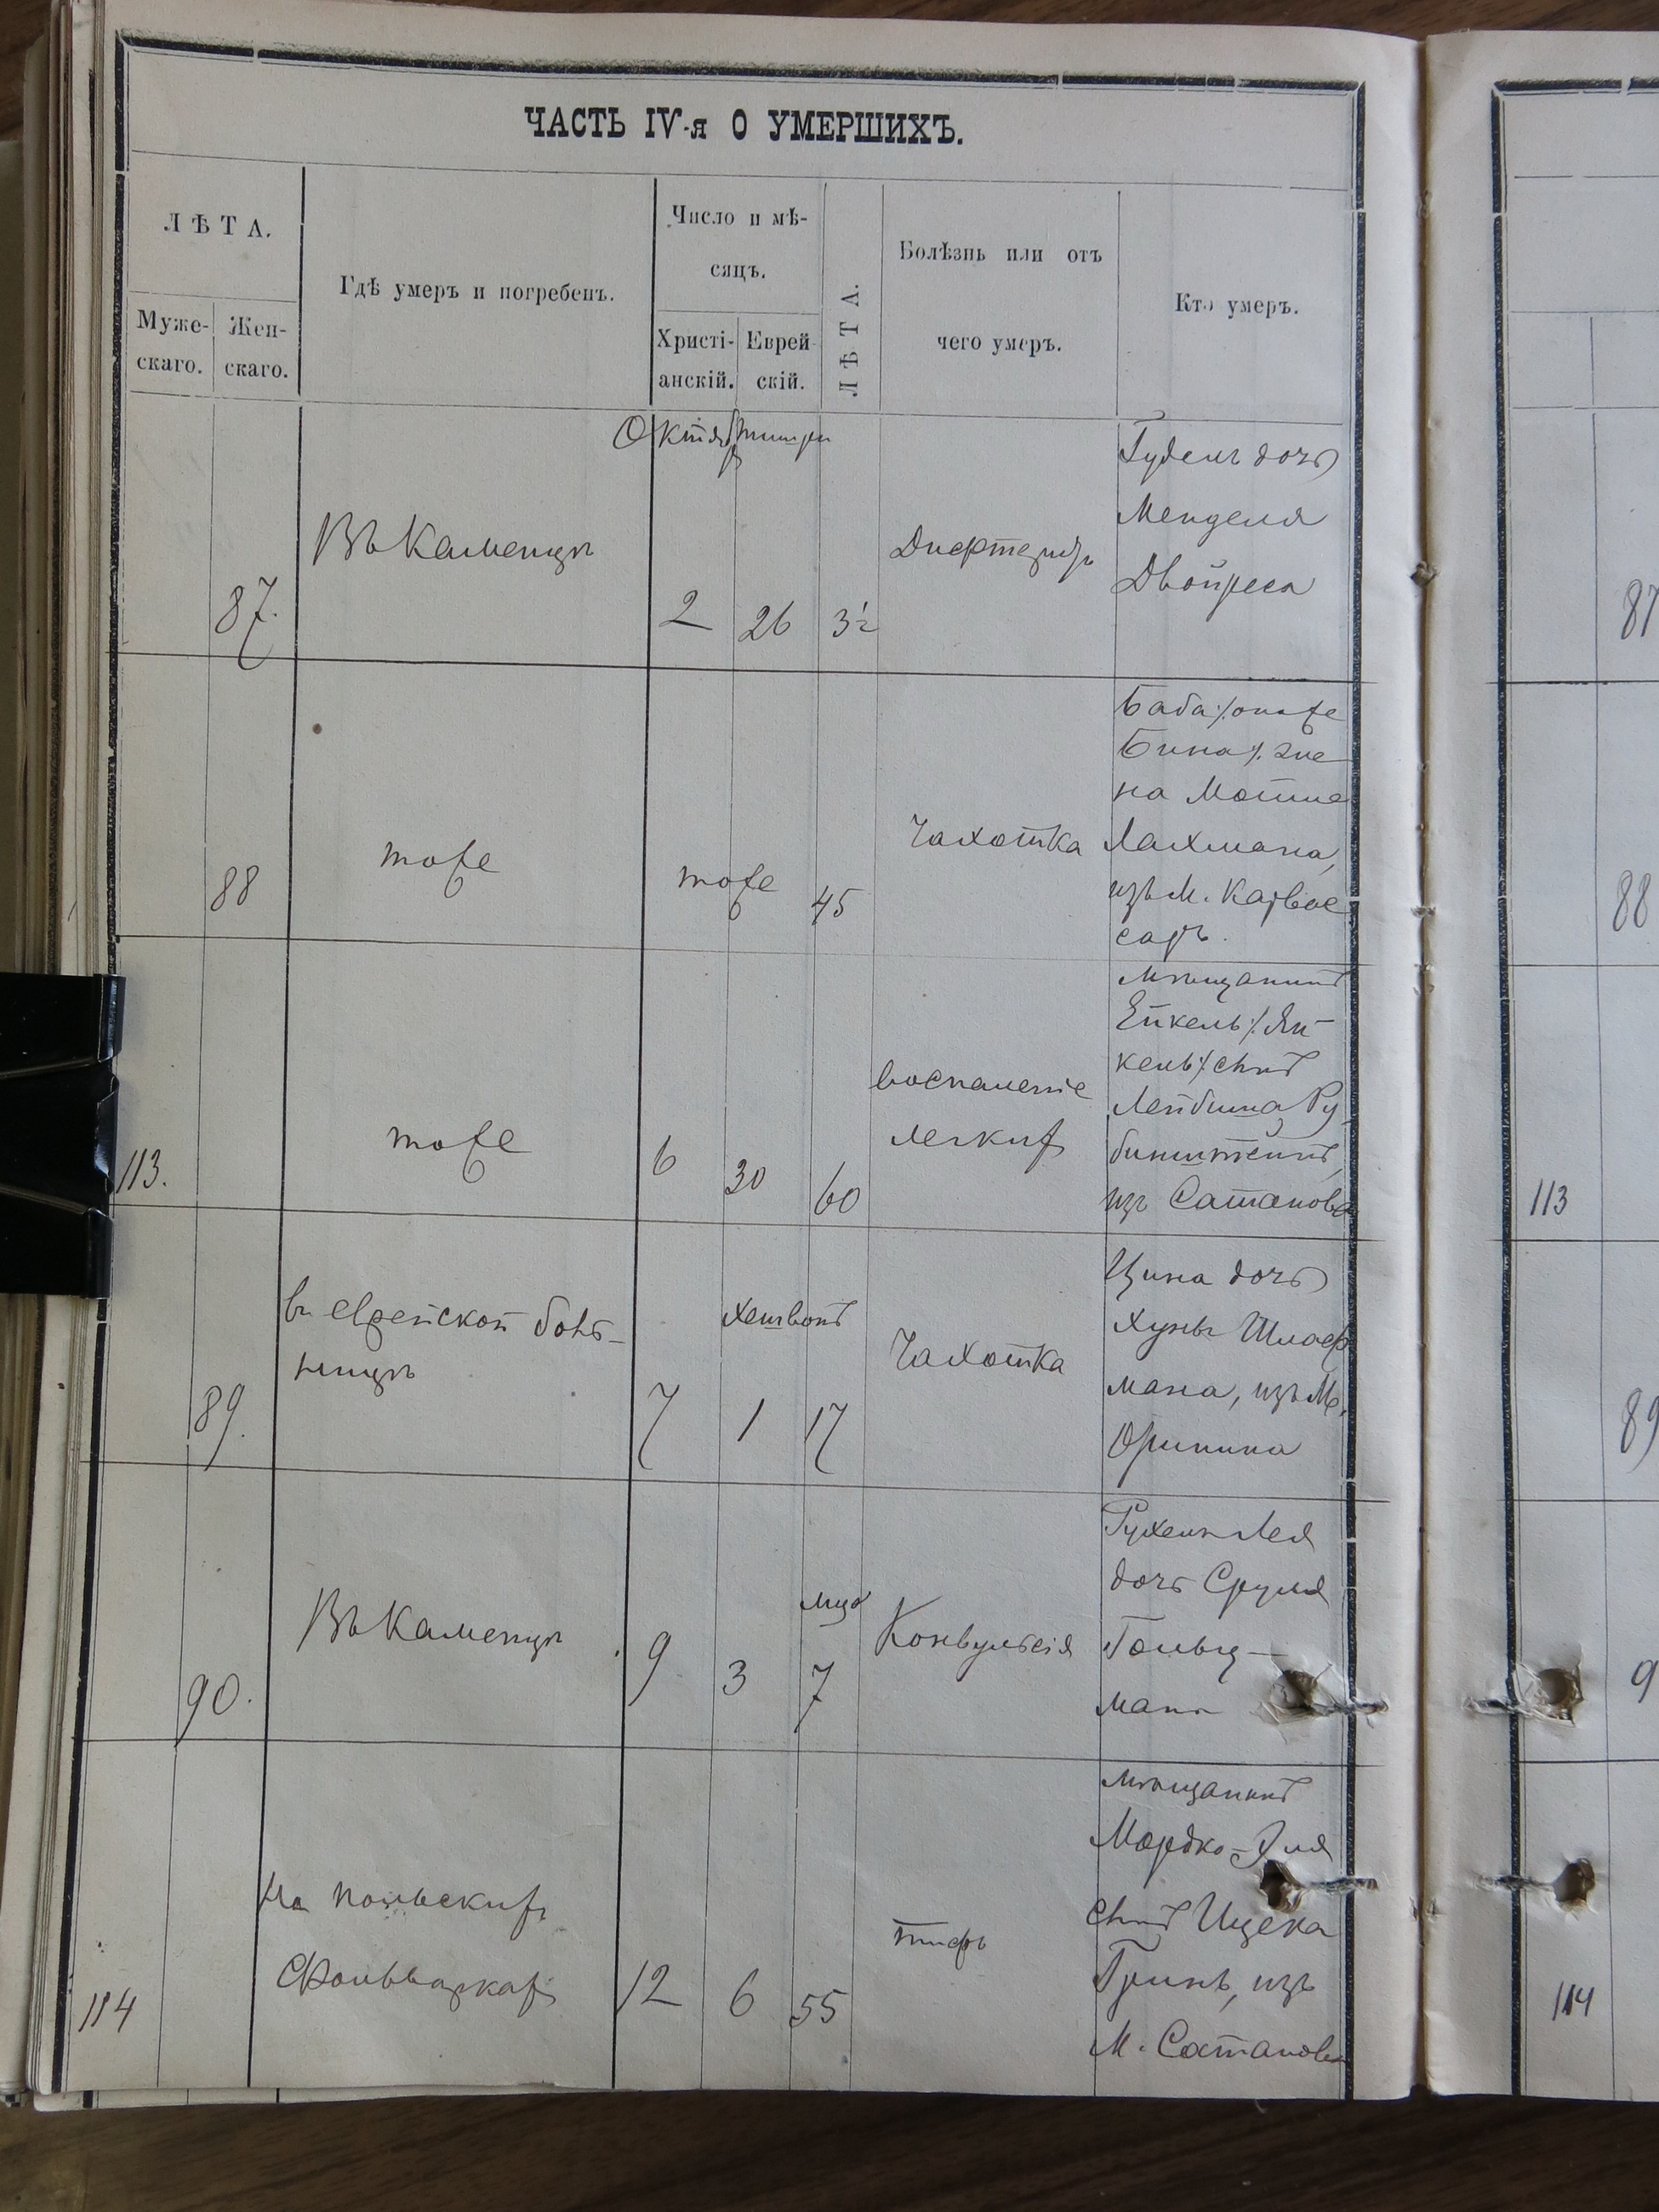 ЧАСТЬ IV-я О УМЕРШИХЪ.
ЛѢТА.
Муже-
скаго.
Жен-
скаго.
Гдѣ умеръ и погребенъ.
Число и мѣ-
сяцъ.
Христі-
анскій.
Еврей
скій.
ЛѢТА.
Болѣзнь или отъ
чего умеръ.
Кто умеръ.
Октяб Тишри
87.
Въ Каменцѣ
2
26
3½
Дифтеритъ
дочь
Менделя
Двойреса
87
88
тоже
тоже
45
Чахотка
Баба /. онаже
Бина /. же
на Мошка
Лахмана,
изъ М. Карвас
саръ.
88
113.
тоже
6
30
60
воспаленіе
легкихъ
мѣщанинъ
Ейкель /. Ян
кель /. сынъ
Лейбиша Ру
бинштейнъ,
изъ Сатанова
113
89.
въ еврейской боль-
ницѣ
Хешвонъ
7
1
17
Чахотка
Цина дочь
Хуны
мана, изъ М.
Оринина
89
90.
Въ Каменцѣ
9
3
мца
7
Конвульсія
Рухель Лея
дочь Сруля
Гольц-
мана
9
114
на польскихъ
Фольваркахъ
12
6
55
тифъ
мѣщанинъ
Мордко-Эля
сынъ Ицека
Гринъ, изъ
М. Сатанова
114